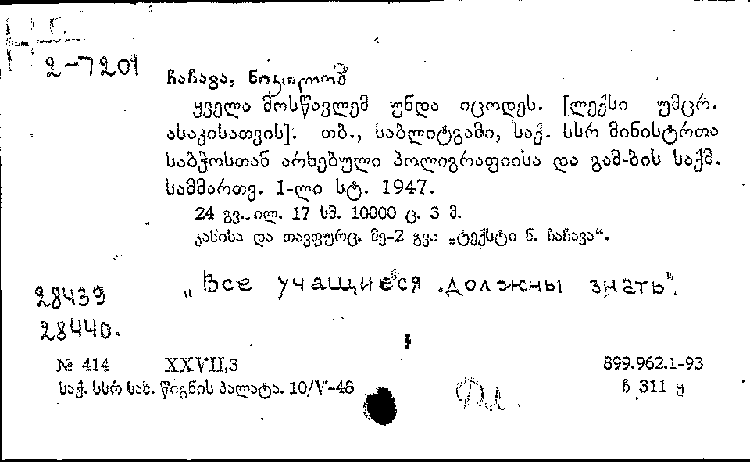 2-7201
ჩაჩავა,
ყველა მოსწავლემ უნდა იცოდეს. [ლექსი უმცრ.
ასაკისათვის]. თბ., საბლიტგამი, საქ. სსრ მინისტრთა
საბჭოსთან არსებული პოლიგრაფიისა და გამ-ბის საქმ.
სამმართვ. I-ლი სტ. 1947.
24 გვ. ილ. 17 სმ. 10000 ც. 3 მ.
კანისა და თავფურც. მე-2 გვ.: „ტექსტი ნ. ჩაჩავა“.
„Все учащиеся должны знать".
28439
28440.
№ 414 XXVII,3 899.962.1-93
საქ. სსრ სახ. წიგნის პალატა. 10/V-48 ჩ 311 ყ